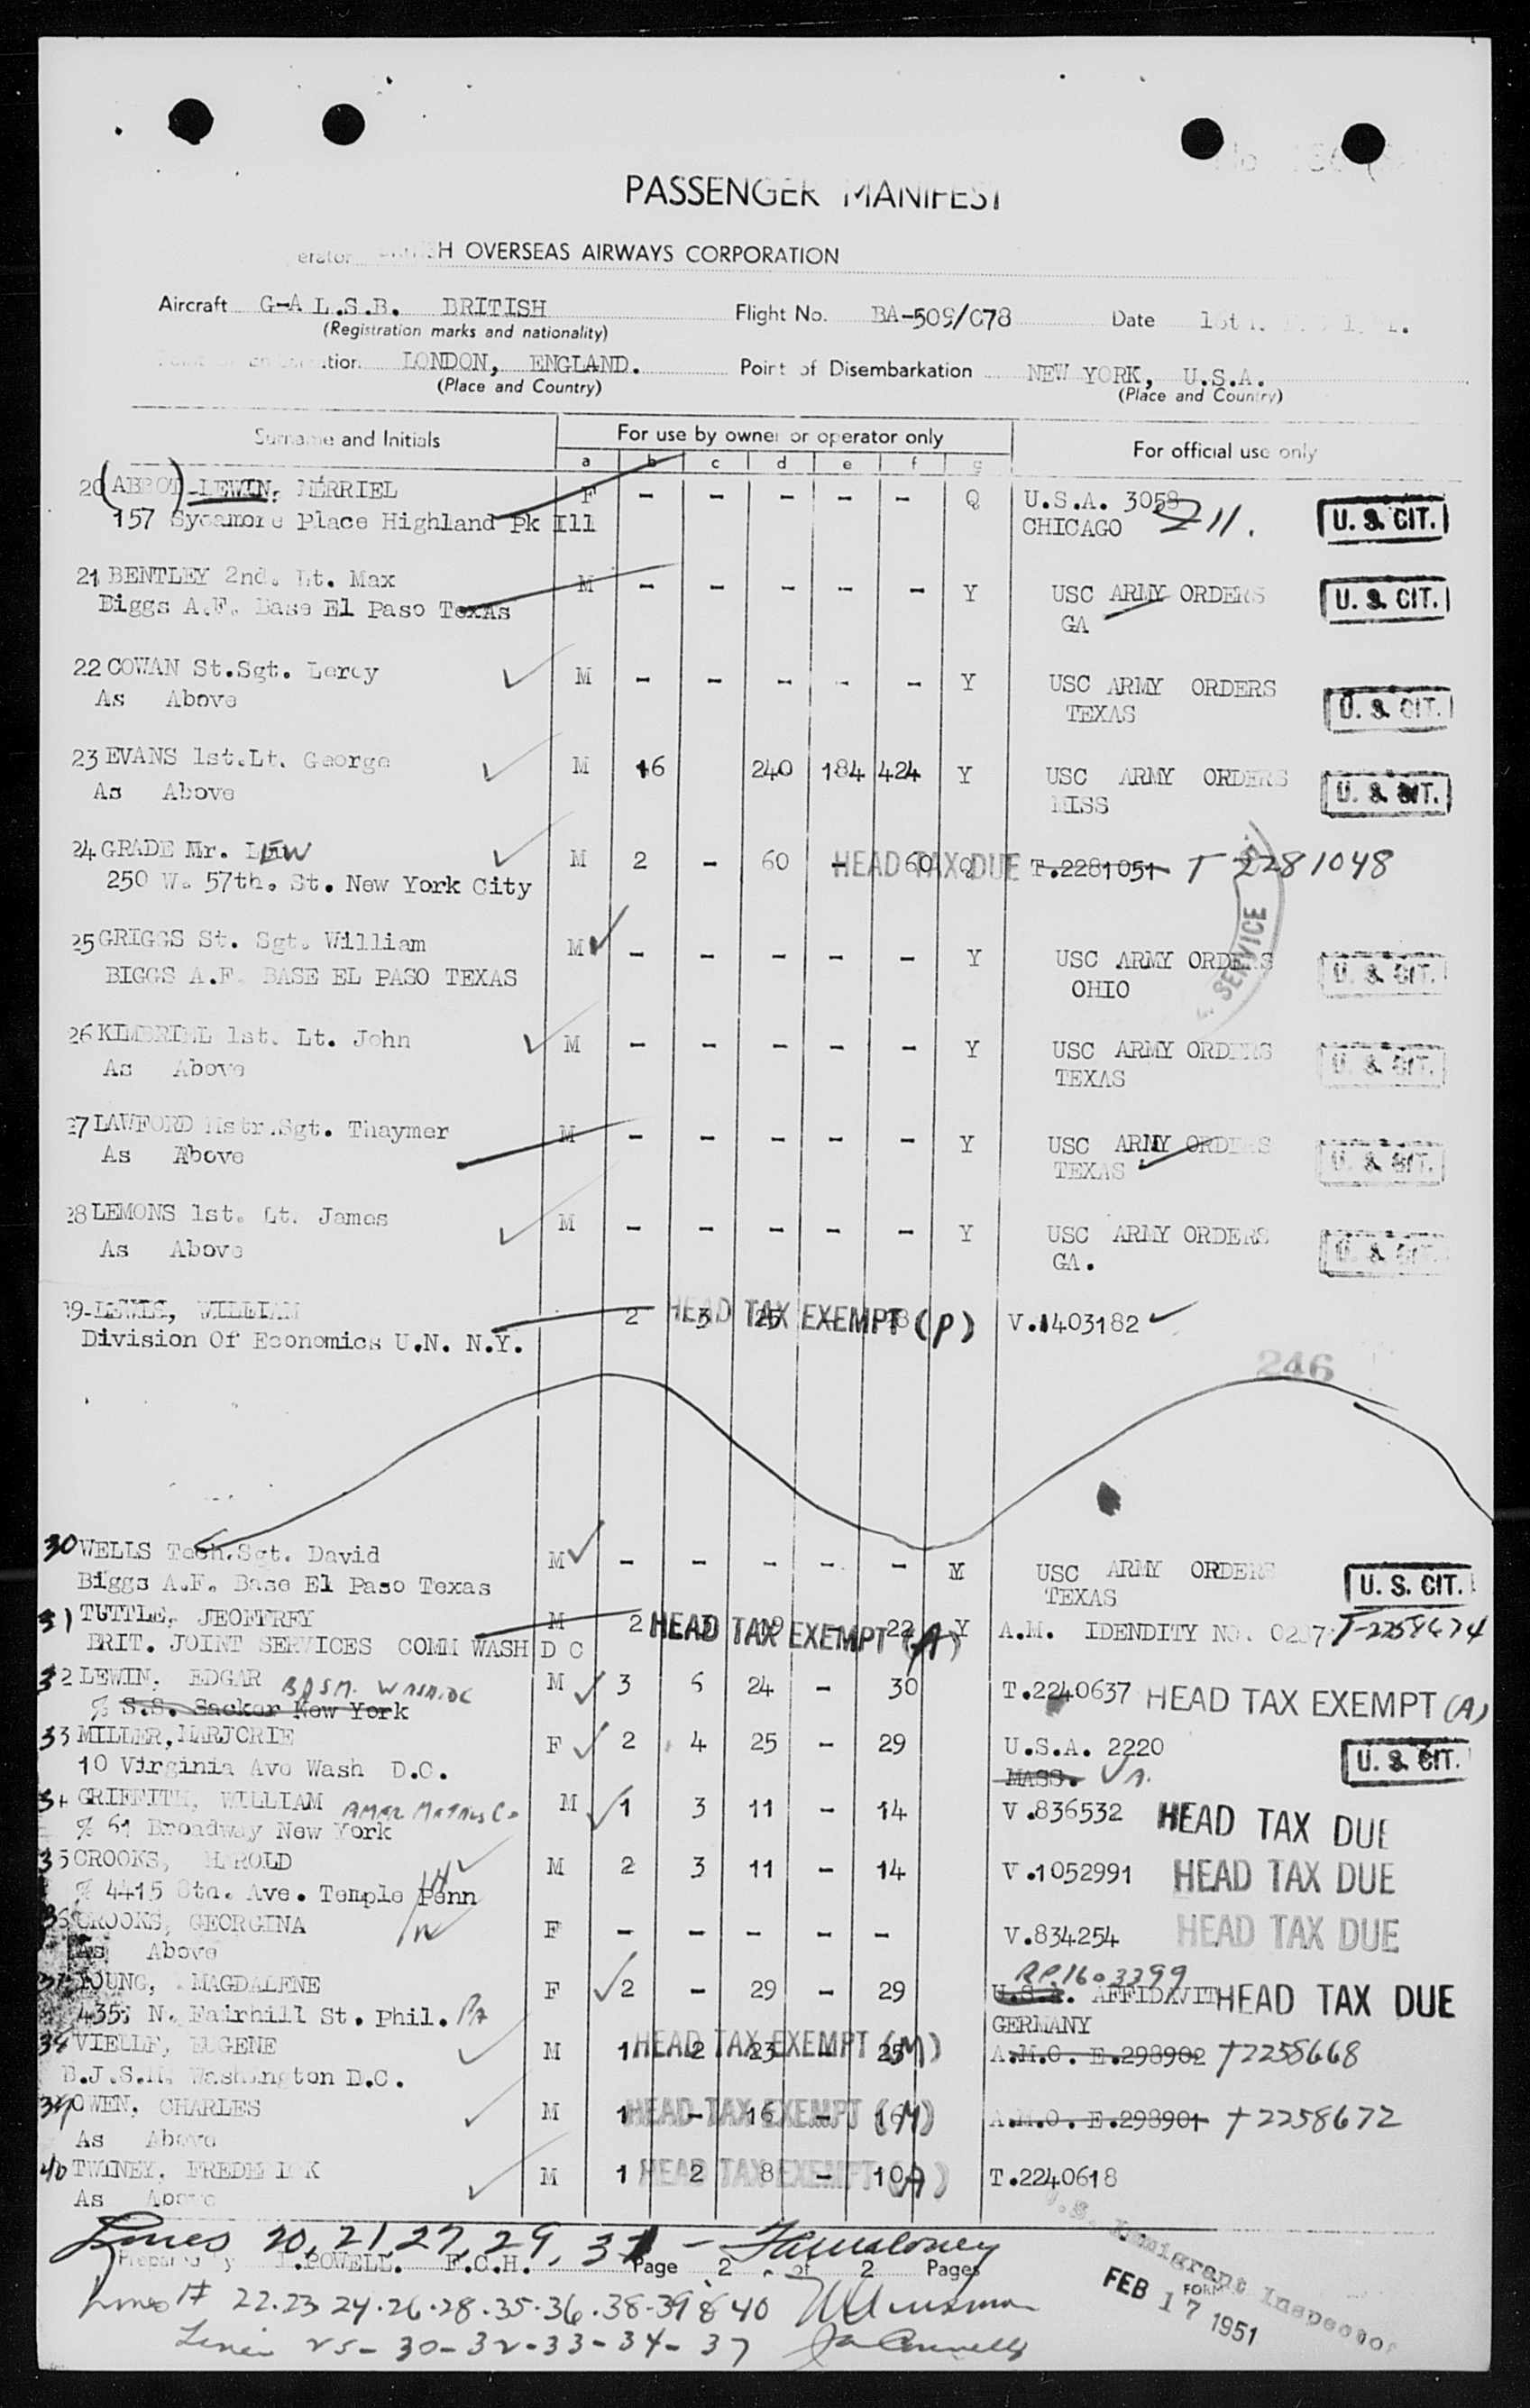 PASSENGER MANIFEST
OVERSEAS AIRWAYS CORPORATION
Aircraft G-A L.S.B. BRITISH Flight No. BA-509/078 Date
(Registration marks and nationality)
LONDON, ENGLAND. Point of Disembarkation NEW YORK, U.S.A.
(Place and Country) (Place and Country)
Surname and Initials For use by owner or operator only For official use only
a b c d e f g
20 (ABBOT)-LEWIN, MERRIEL F - - - - - Q U.S.A. 3058 U. S. CIT.
157 Sycamore Place Highland Pk Ill CHICAGO
21 BENTLEY 2nd. Lt. Max M - - - - - Y USC ARMY ORDERS U. S. CIT.
Biggs A.F. Base El Paso TexAs GA
22 COWAN St.Sgt. Leroy M - - - - - Y USC ARMY ORDERS U. S. CIT.
As Above TEXAS
23 EVANS 1st.Lt. George M 16 240 184 424 Y USC ARMY ORDERS U. S. CIT.
As Above MISS
24 GRADE Mr. LEW M 2 - 60 - 60 Q HEAD TAX DUE T.2281051 T 2281048
250 W. 57th. St. New York City
SERVICE
25 GRIGGS St. Sgt. William M - - - - - Y USC ARMY ORDERS U. S. CIT.
BIGGS A.F. BASE EL PASO TEXAS OHIO
26 1st. Lt. John M - - - - - Y USC ARMY ORDERS U. S. CIT.
As Above TEXAS
27 LAWFORD Mstr.Sgt. Thaymer M - - - - - Y USC ARMY ORDERS U. S. CIT.
As Above TEXAS
28 LEMONS 1st. Lt. James M - - - - - Y USC ARMY ORDERS U. S. CIT.
As Above GA.
LEWIS, WILLIAM 2 3 25 HEAD TAX EXEMPT (P) V.1403182
Division Of Economics U.N. N.Y.
246
30 WELLS Tech.Sgt. David M - - - - - Y USC ARMY ORDERS U. S. CIT.
Biggs A.F. Base El Paso Texas TEXAS
31 TUTTLE, JEOFFREY M 2 3 19 22 Y HEAD TAX EXEMPT (A) A.M. IDENDITY NO. T-2258674
BRIT. JOINT SERVICES COMM WASH D C
32 LEWIN, EDGAR BJSM. WASH.DC M 3 6 24 - 30 T.2240637 HEAD TAX EXEMPT (A)
% S.S. Sacker New York
33 MILLER, MARJORIE F 2 4 25 - 29 U.S.A. 2220 U. S. CIT.
10 Virginia Ave Wash D.C. MASS. VA.
34 GRIFFITH, WILLIAM AMER METALS Co M 1 3 11 - 14 V.836532 HEAD TAX DUE
% 61 Broadway New York
35 CROOKS, HAROLD M 2 3 11 - 14 V.1052991 HEAD TAX DUE
% 4415 8th. Ave. Temple Penn
36 CROOKS, GEORGINA F - - - - - V.834254 HEAD TAX DUE
As Above
RP.1603399
37 YOUNG, MAGDALENE F 2 - 29 - 29 U.S.A. AFFIDAVIT HEAD TAX DUE
4355 N. Fairhill St. Phil. PA GERMANY
38 VIEULE, EUGENE M 1 2 23 - 25 HEAD TAX EXEMPT (M) A.M.O. E.298902 T2258668
B.J.S.M. Washington D.C.
39 OWEN, CHARLES M 1 - 16 - 16 HEAD TAX EXEMPT (M) A.M.O. E.298901 T2258672
As Above
40 TWINEY, FREDERICK M 1 2 8 - 10 HEAD TAX EXEMPT (A) T.2240618
As Above
Lines 20, 21, 27, 29, 31 -
POWELL. F.C.H. Page 2 of 2 Pages
Lines # 22.23 24.26.28.35.36.38.39 & 40
Lines 25-30-32-33-34-37
U.S. Immigrant Inspector
FORM
FEB 17 1951